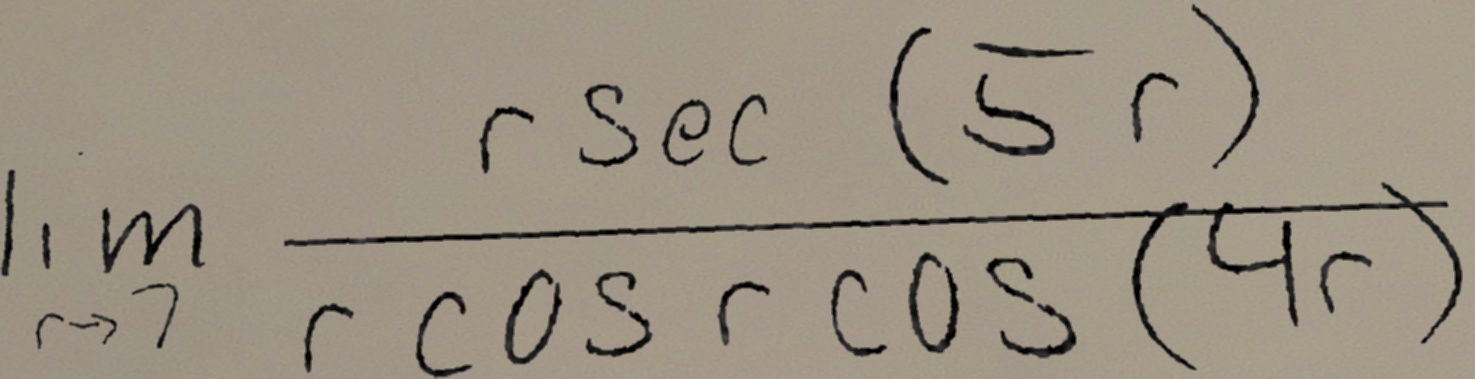 \lim_{r \to 7} \frac{r \sec (5r)}{r \cos r \cos (4r)}